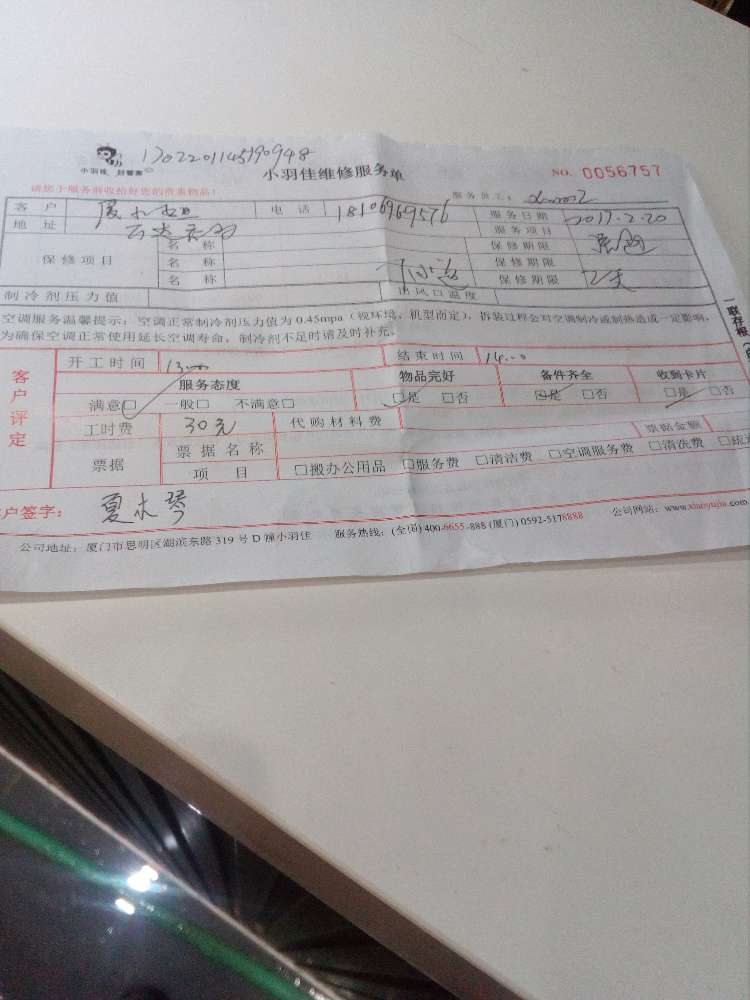 小羽佳 好管家
1702201145190948
小羽佳维修服务单
NO. 0056757
请您于服务前收拾好您的贵重物品!
服务员工:
客户 电话 18106969576 服务日期 2017.2.20
地址 服务项目
保修项目 名称 保修期限
名称 保修期限
名称 保修期限
制冷剂压力值 出风口温度
空调服务温馨提示:空调正常制冷剂压力值为0.45mpa(视环境,机型而定),拆装过程会对空调制冷或制热造成一定影响,
为确保空调正常使用延长空调寿命,制冷剂不足时请及时补充。
一联存根
客户评定
开工时间 13:00 结束时间 14:00
服务态度 物品完好 备件齐全 收到卡片
满意□ 一般□ 不满意□ □是 □否 □是 □否 □是 □否
工时费 30元 代购材料费
票据 票据名称 票据金额
项目 □搬办公用品 □服务费 □清洁费 □空调服务费 □清洗费
户签字: 夏木琴
公司地址:厦门市思明区湖滨东路319号D幢小羽佳 服务热线:(全国)400-6655-888 (厦门)0592-5178888 公司网站:www.xiaoyujia.com